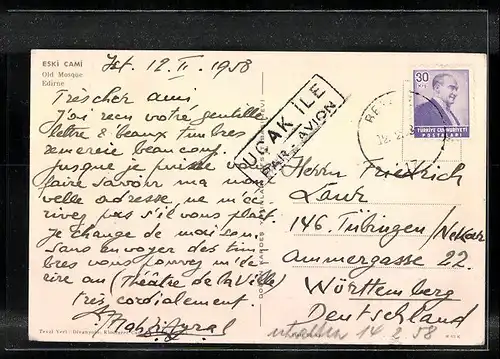 ESKİ CAMİ
Old Mosque
Edirne
İst. 12. II. 1958
Trés cher ami
J'ai reçu votre gentille
lettre & beaux timbres
remercie beaucoup.
Jusque je puisse vous
faire savoir ma nou
velle adresse, ne m'éc
rivez pas s'il vous plait.
Je change de maison.
Sans envoyer des tim
bres vous pouvez m'éc
rire au (Théâtre de la Ville)
Très cordialement.
UÇAK İLE
PAR-AVION
30
TÜRKİYE CUMHURİYETİ
POSTALARI
Herrn Friedrich
146. Tübingen/Neckar
Ammergasse 22.
Württemberg
Deutschland
erhalten 14 2 58